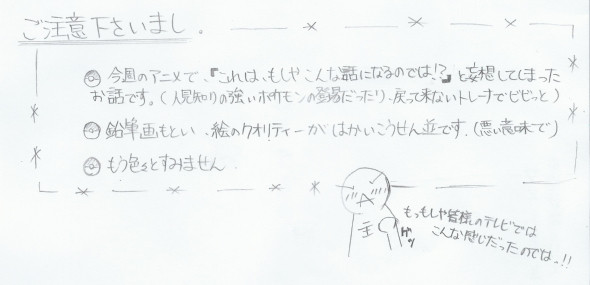 ご注意下さいまし。
今週のアニメで、『これは、もしやこんな話になるのでは!?』と妄想してしまった
お話です。(人見知りの強いポケモンの登場だったり、戻って来ないトレーナーでビビッと)
鉛筆画もとい、絵のクオリティーがはかいこうせん並です。(悪い意味で)
もう色々とすみません
主
もっもしや皆様のテレビでは
こんな感じだったのでは…!!